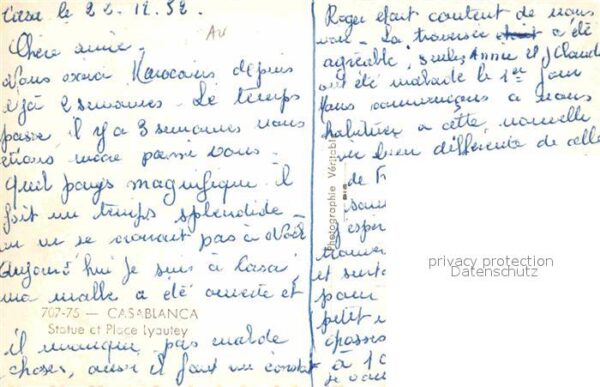 Casa le 22.12.52.
AU
Chère amie,
Nous voici Marocains depuis
déjà 2 semaines. Le temps
passe il y a 3 semaines nous
étions encore parmi vous.
Quel pays magnifique. il
fait un temps splendide
on ne se croirait pas à Noël
Aujourd'hui je suis à Casa
ma malle a été ouverte et
707-75 — CASABLANCA
Statue et Place Lyautey
il manque pas mal de
choses, aussi il faut un constat
Photographie Véritable
Roger était content de nous
voir. La traversée a été
agréable, seules Annie et Claude
ont été malade le 1er jour
Nous commençons à nous
habituer à cette nouvelle
vie bien différente de celle
de F
et surt
pour
petit
à 10
privacy protection
Datenschutz